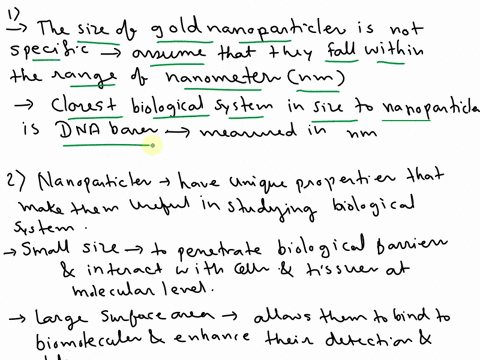 1)
→ The size of gold nanoparticles is not
specific → assume that they fall within
the range of nanometer (nm)
→ Closest biological system in size to nanoparticle
is DNA bases → measured in nm
2) Nanoparticles → have unique properties that
make them useful in studying biological
system.
→ Small size → to penetrate biological barriers
& interact with cells & tissues at
molecular level.
→ Large surface area → allows them to bind to
biomolecules & enhance their detection &